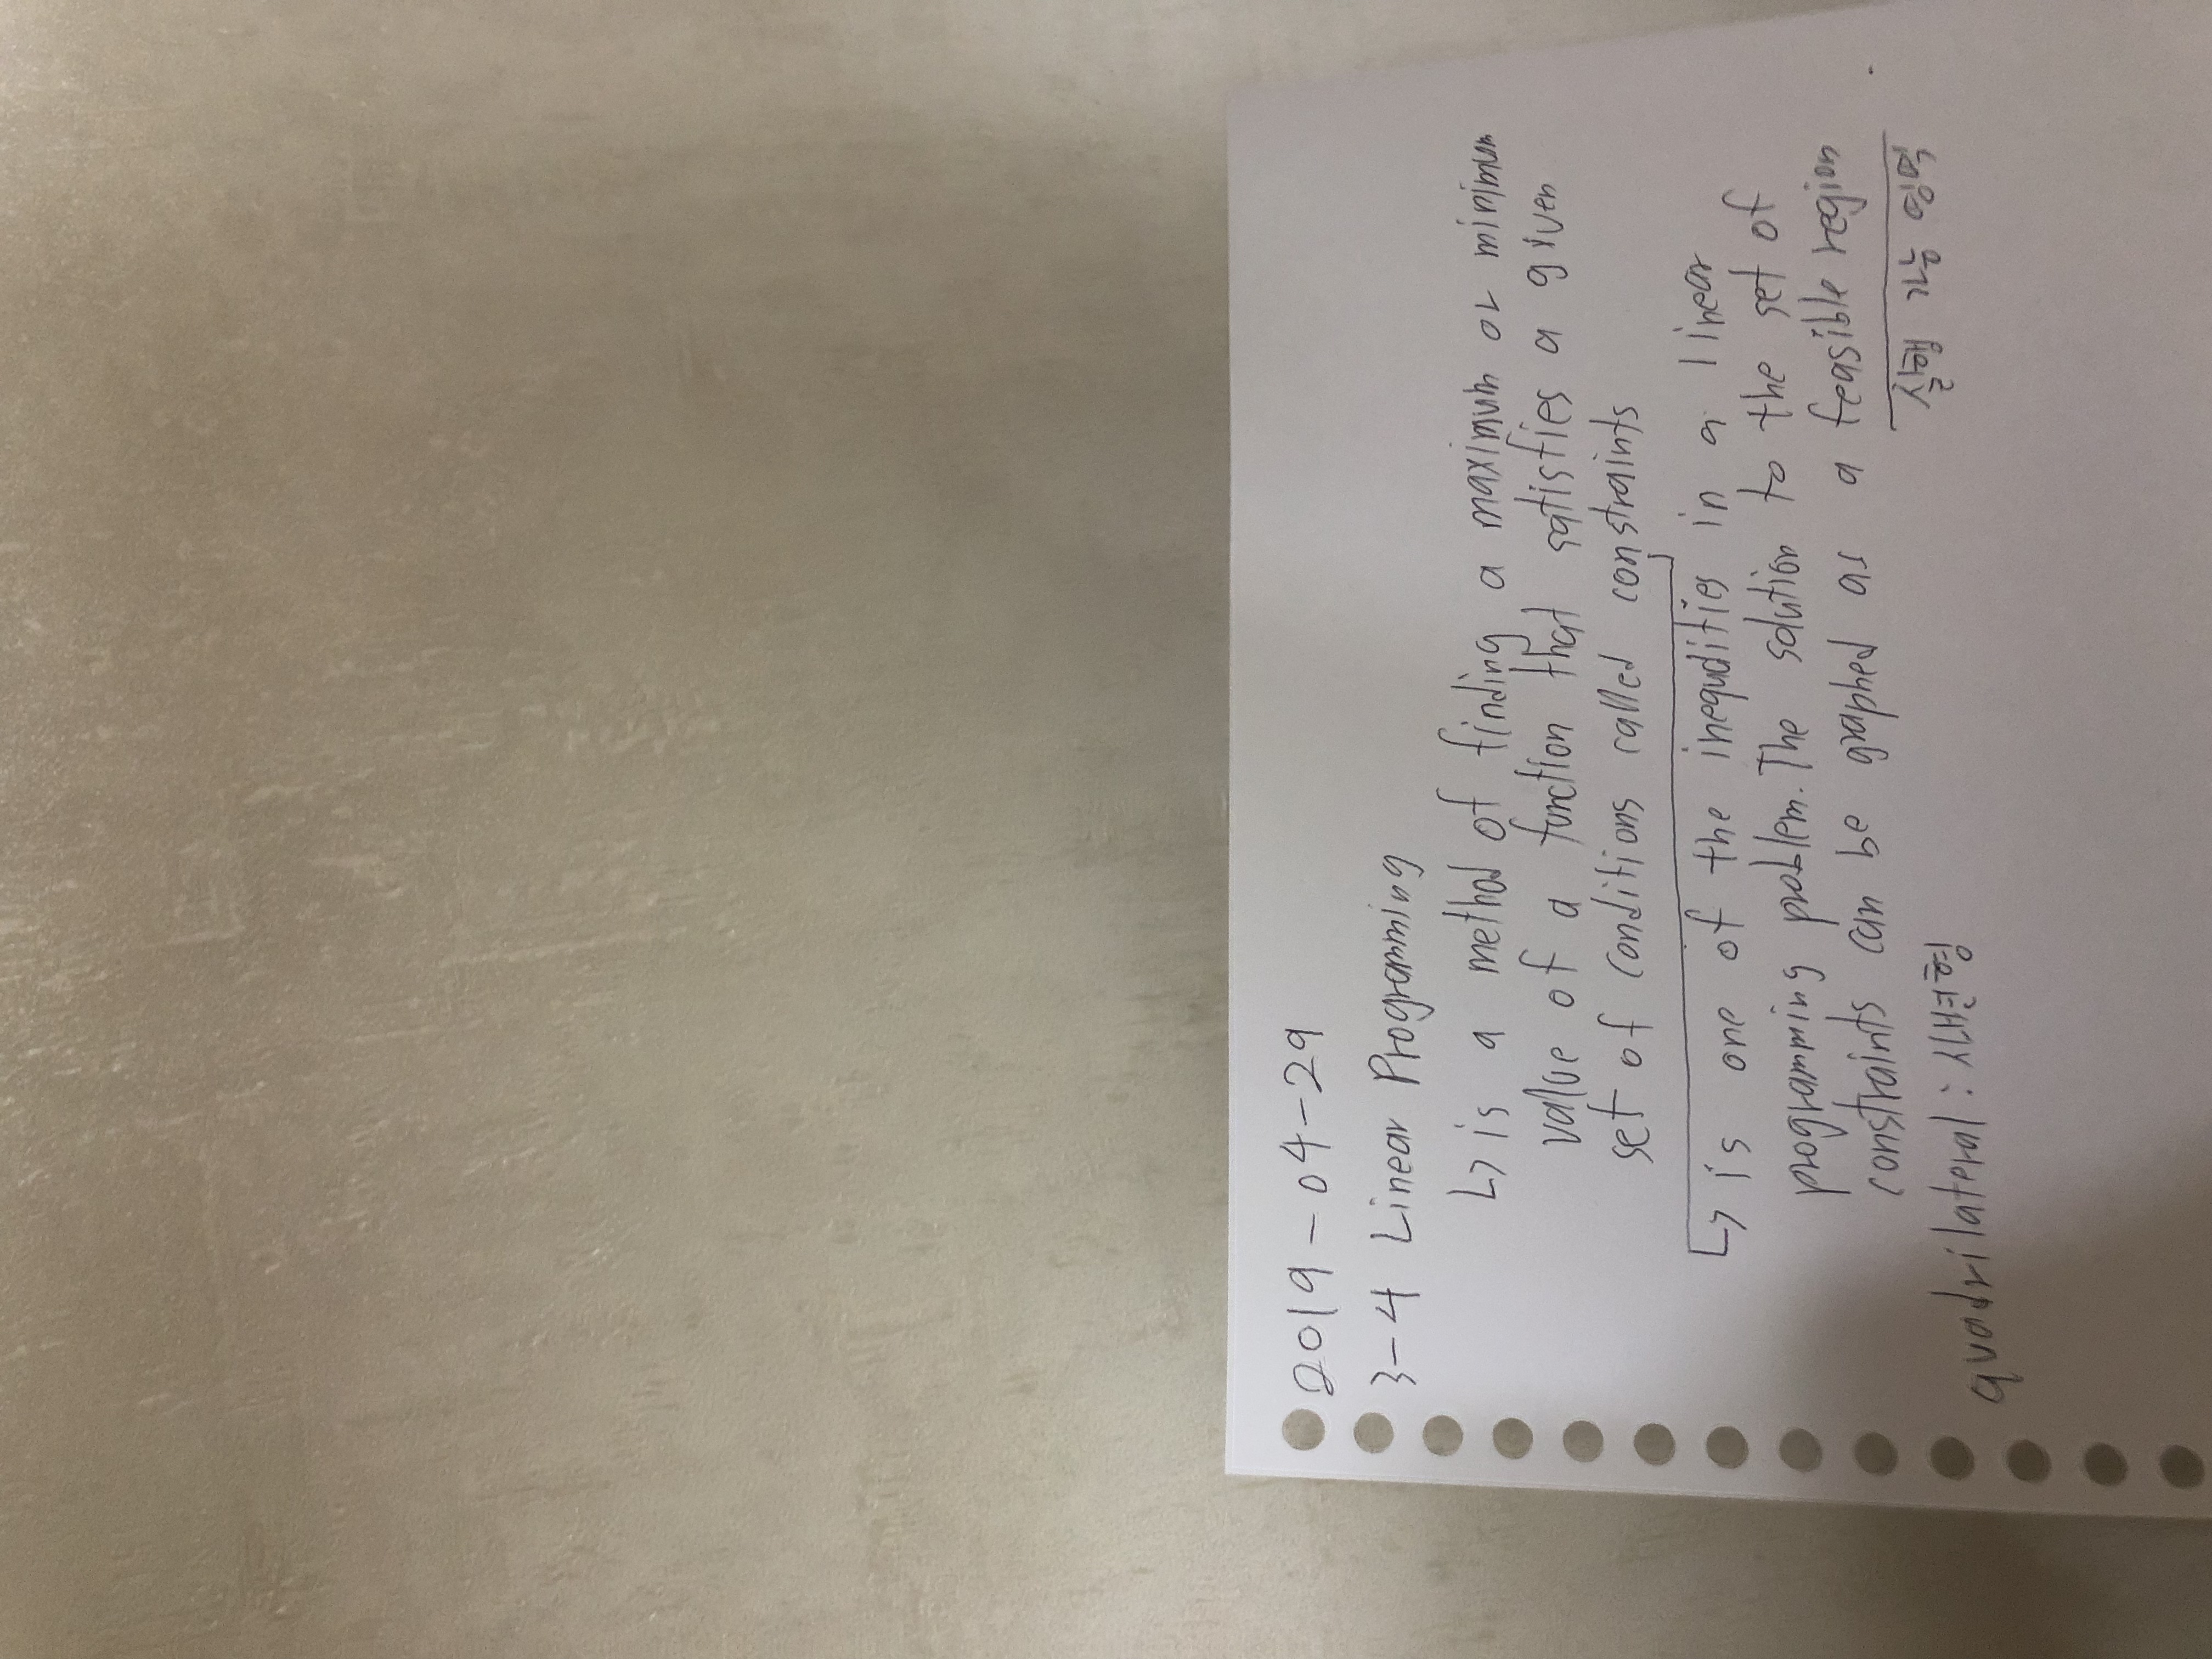 2019-04-29
3-4 Linear Programming
↳ is a method of finding a maximum or minimum
value of a function that satisfies a given
set of conditions called constraints
↳ is one of the inequalities in a linear
programming problem. The solution to the set of
constraints can be graphed as a feasible region
실현 가능 영역
quadrilateral : 사변형